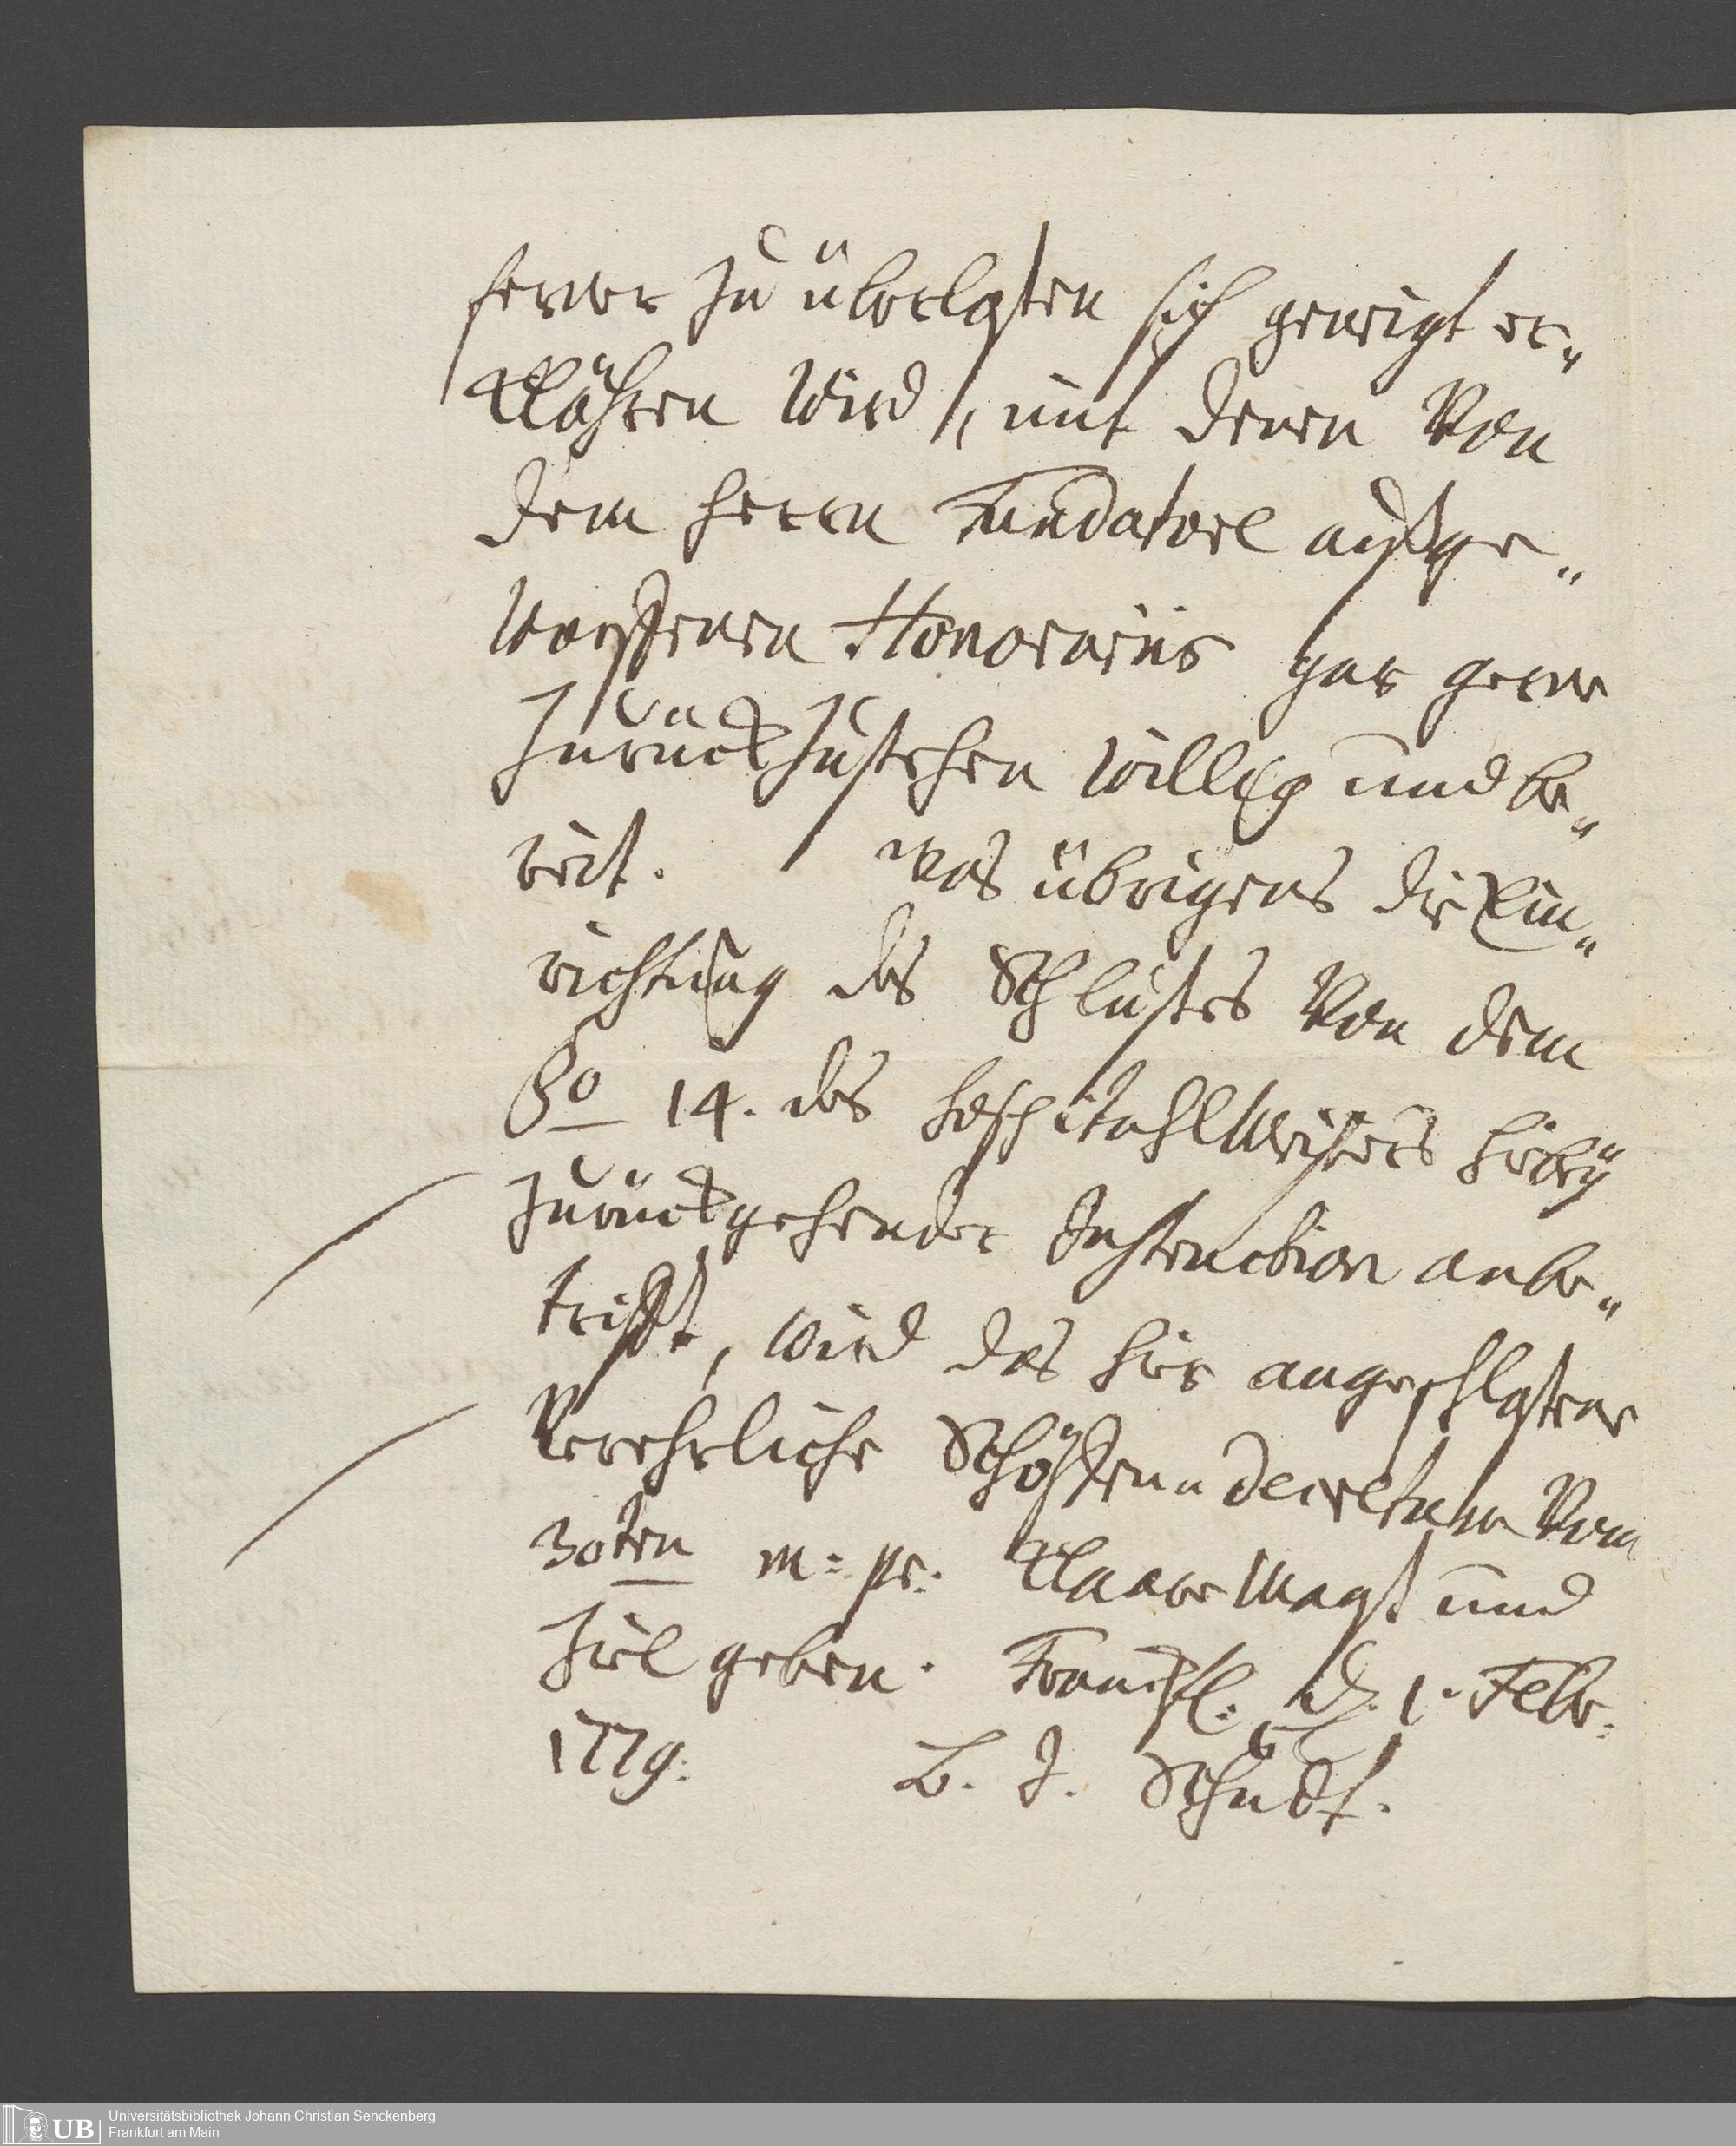 ferner zu überlaßen sich geneigt er„
klähren wird, mit denen von
dem Herrn Fundatore außge„
worffenen Honorariis gar gerne
zurückzustehen willig und be„
reit. Was übrigens die Ein„
richtung des Schlußes von dem
§o 14. des Hospitahlmeisters hiebeÿ
zurückgehender Instruction anbe„
trifft, wird das hier angeschloßene
Verehrliche Schöffen„Decretum vom
30ten m: pr: Klaare Maaß und
Ziel geben. Franckf. d. 1. Febr.
1779. B. J. Schudt.
UB Universitätsbibliothek Johann Christian Senckenberg
Frankfurt am Main